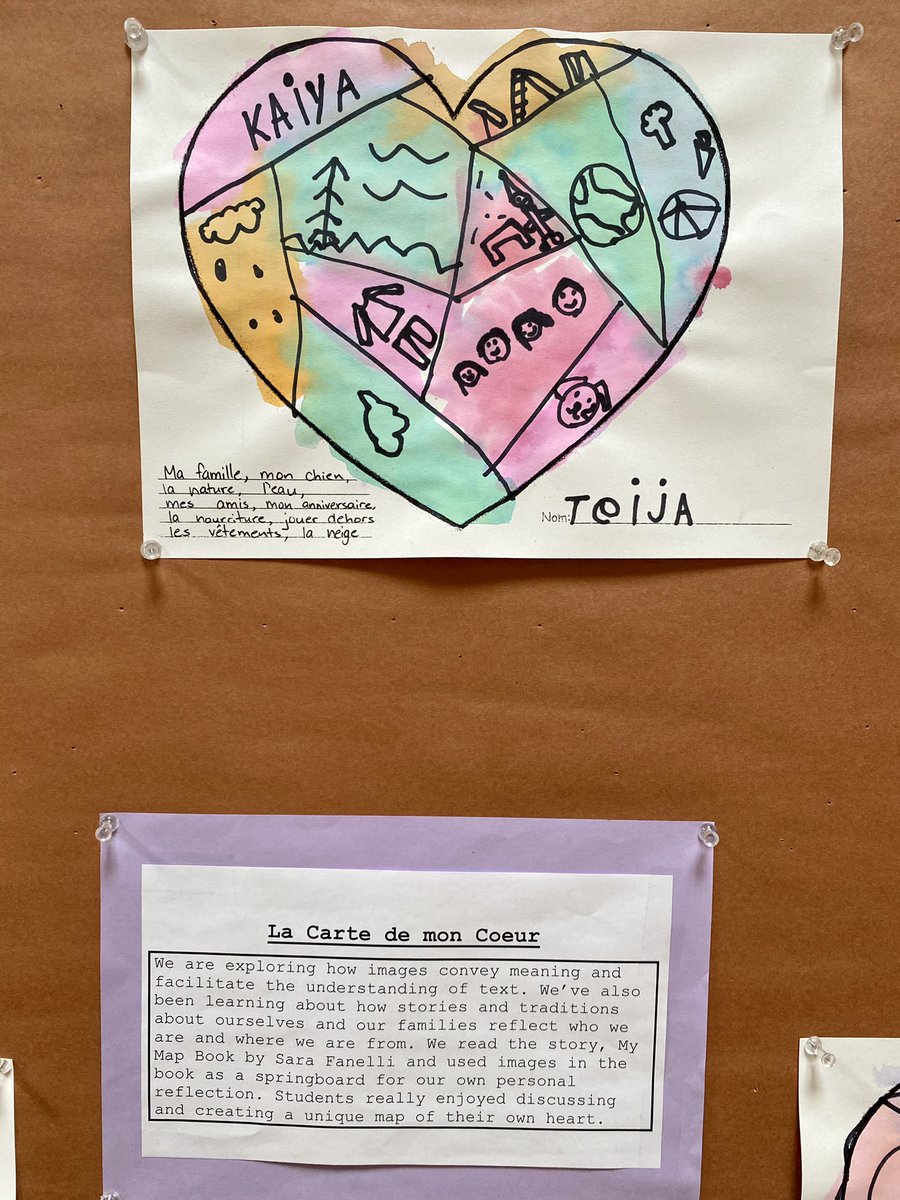 KAiYA
Ma famille, mon chien,
la nature, l'eau,
mes amis, mon anniversaire,
la nourriture, jouer dehors
les vêtements, la neige
Nom: TeijA
La Carte de mon Coeur
We are exploring how images convey meaning and
facilitate the understanding of text. We've also
been learning about how stories and traditions
about ourselves and our families reflect who we
are and where we are from. We read the story, My
Map Book by Sara Fanelli and used images in the
book as a springboard for our own personal
reflection. Students really enjoyed discussing
and creating a unique map of their own heart.